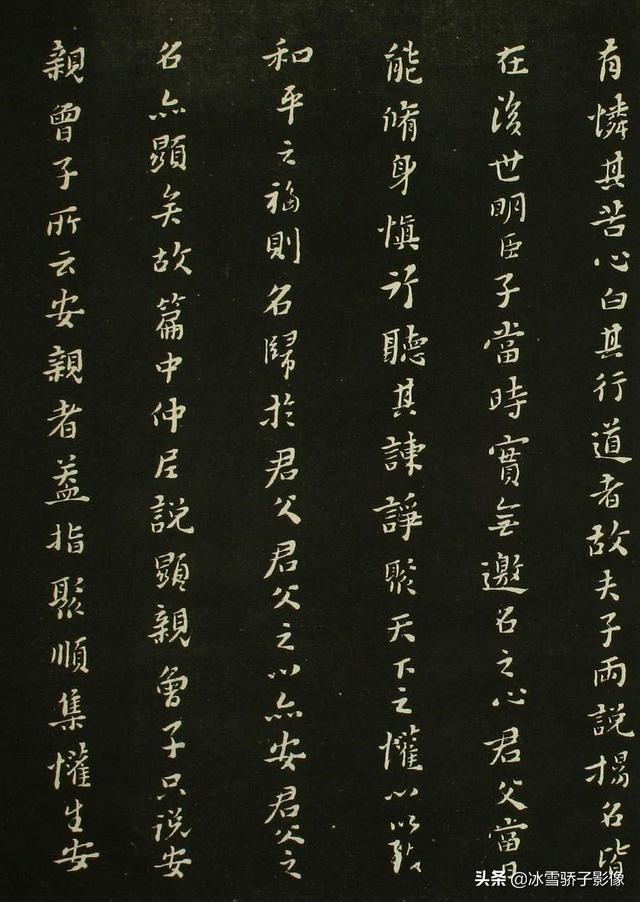 有憐其苦心白其行道者故夫子兩說揚名皆
在後世明臣子當時實無邀名之心君父當日
能脩身慎行聽其諫諍聚天下之懽心以致
和平之福則名歸於君父君父之心亦安君父之
名亦顯矣故篇中仲尼說顯親曾子只說安
親曾子所云安親者蓋指聚順集懽生安
头条 @冰雪骄子影像